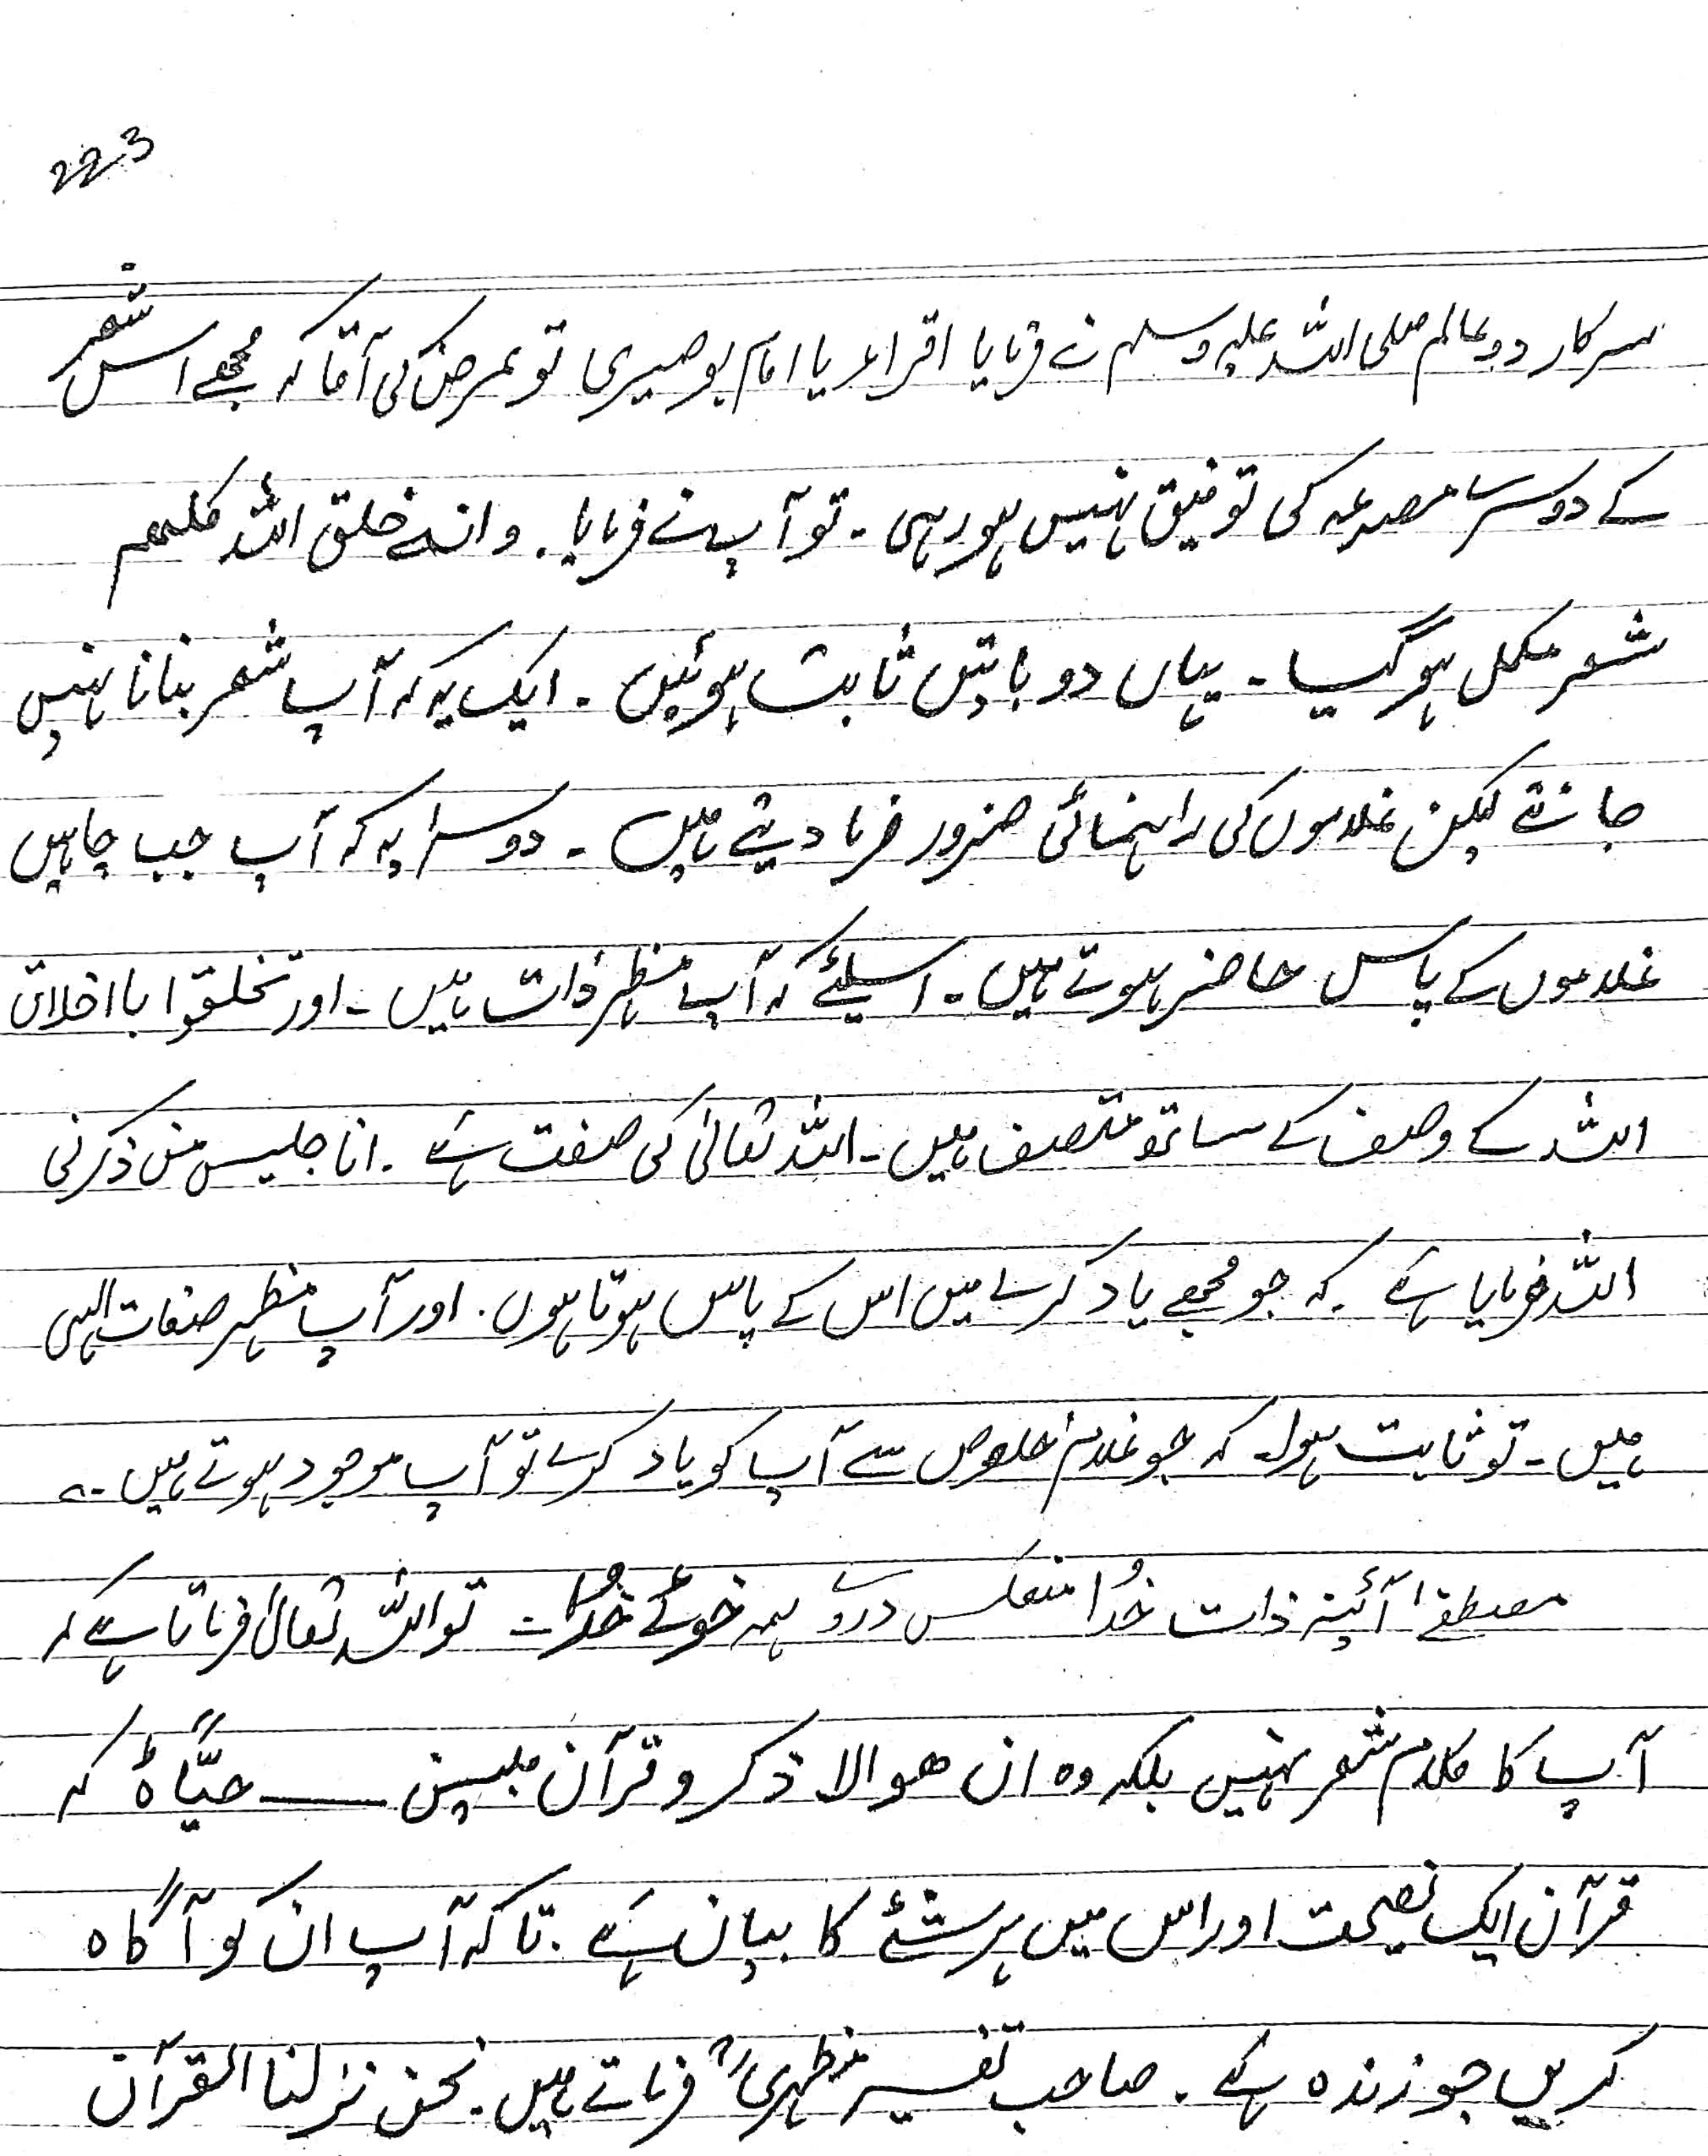 223
سرکار دوعالم صلی اللہ علیہ وسلم نے فرمایا اقراء یا امام بوصیری تو عرض کی آقا کہ مجھے اس شعر
کے دوسرا مصرعہ کی توفیق نہیں ہو رہی ۔ تو آپ نے فرمایا . وانہ خلق اللہ کلھم
شعر مکمل ہو گیا ۔ یہاں دو باتیں ثابت ہوئیں ۔ ایک یہ کہ آپ شعر بنانا نہیں
جانتے لیکن غلاموں کی راہنمائی ضرور فرما دیتے ہیں ۔ دوسرا یہ کہ آپ جب چاہیں
غلاموں کے پاس حاضر ہوتے ہیں ۔ اسلئے کہ آپ مظہر ذات ہیں ۔ اور تخلقوا با اخلاق
اللہ کے وصف کے ساتھ متصف ہیں ۔ اللہ تعالیٰ کی صفت ہے . انا جلیس من ذکرنی
اللہ فرمایا ہے . کہ جو مجھے یاد کرے میں اس کے پاس ہوتا ہوں . اور آپ مظہر صفات الہی
ہیں ۔ تو ثابت ہوا کہ جو غلام خلوص سے آپ کو یاد کرے تو آپ موجود ہوتے ہیں ۔
مصطفےٰ آئینہ ذات خُدا منعکس دروے ہمہ خوئے خُدا ۔ تو اللہ تعالیٰ فرماتا ہے کہ
آپ کا کلام شعر نہیں بلکہ وہ ان ھوالا ذکر و قرآن مبین ــــــ حیًّا ہ کہ
قرآن ایک نصیحت اور اس میں ہر شئے کا بیان ہے . تاکہ آپ ان کو آگاہ
کریں جو زندہ ہے . صاحب تفسیر مظہریؒ فرماتے ہیں . نحن نزلنا القرآن